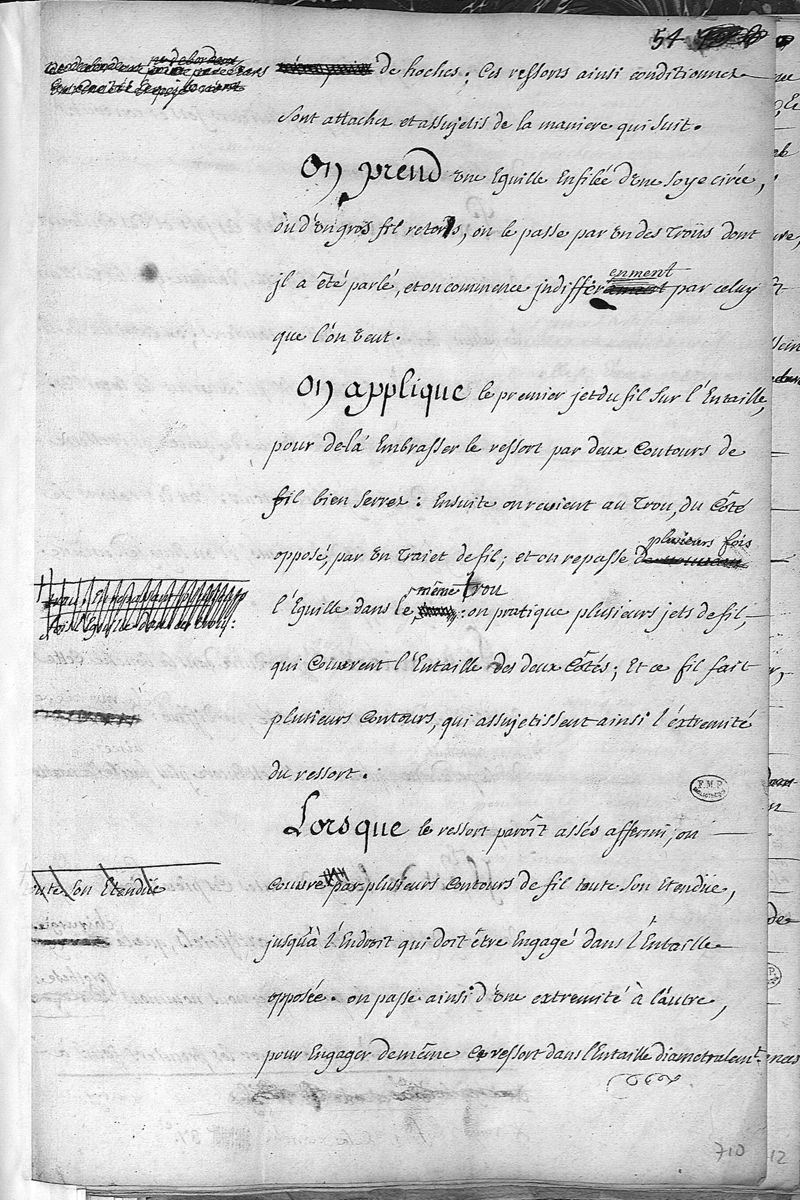 54
de hoches; Ces ressorts ainsi conditionnez
sont attachez et assujetis de la maniere qui suit.
On prend une Eguille Enfilée d'une soye cirée,
ou d'un gros fil retors, on le passe par un des Troüs dont
jl a été parlé, et on commence jndifférenment par celuy
que l'on veut.
On applique le premier jet du fil sur l'Entaille,
pour delà Embrasser le ressort par deux Contours de
fil bien serrez: Ensuite on revient au Trou, du Côté
opposé, par un Traiet de fil; et on repasse plusieurs fois
l'Eguille dans le même trou: on pratique plusieurs jets de fil,
qui Couvrent l'Entaille des deux Côtés; Et ce fil fait
plusieurs Contours, qui assujetissent ainsi l'éxtremité
du ressort.
F.M.P.
Lorsque le ressort paroît assés affermi, on
toute son Etendüe
Couvre par plusieurs Contours de fil toute son Etendüe,
jusqu'à l'Endroit qui doit être Engagé dans l'Entaille
opposée. on passe ainsi d'une extremité à l'autre,
pour Engager de même ce ressort dans l'Entaille diametralemt.
710
12